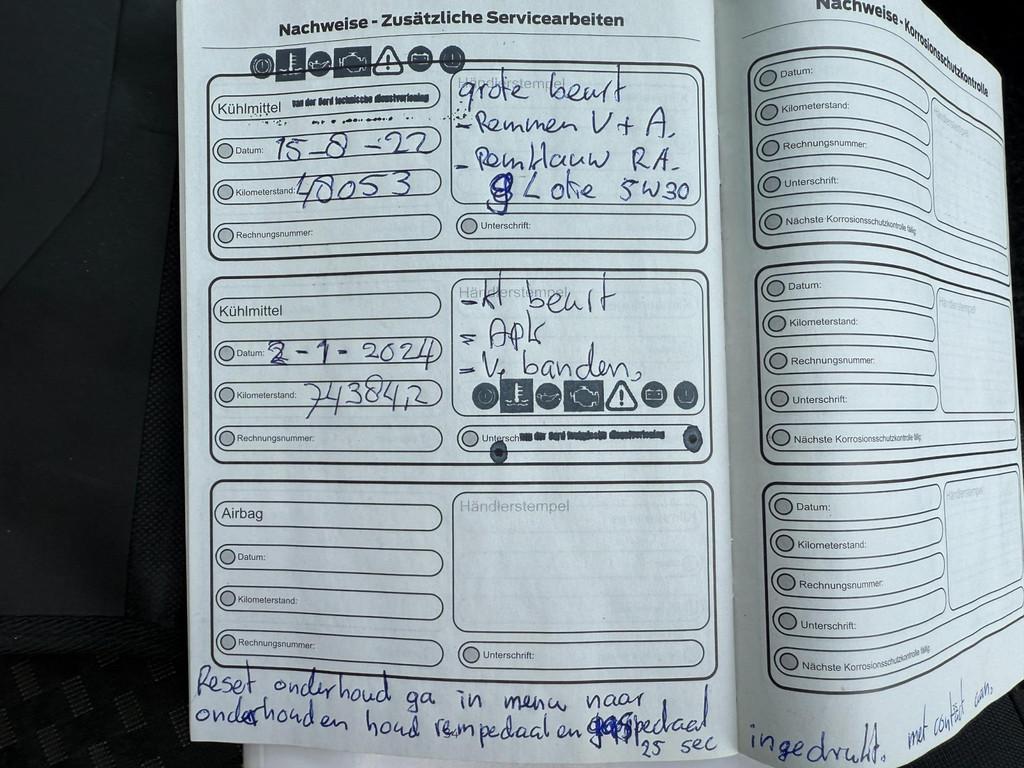 Nachweise - Zusätzliche Servicearbeiten
Kühlmittel
van der Bord technische dienstverlening
Datum: 15-8-22
Kilometerstand: 48053
Rechnungsnummer:
Händlerstempel
grote beurt
- Remmen V + A.
- Remklauw R.A.
9 L olie 5W30
Unterschrift:
Kühlmittel
Datum: 2-1-2024
Kilometerstand: 74384,2
Rechnungsnummer:
Händlerstempel
- Kl beurt
- Apk
- V, banden,
Unterschrift:
van der Bord technische dienstverlening
Airbag
Datum:
Kilometerstand:
Rechnungsnummer:
Händlerstempel
Unterschrift:
Reset onderhoud ga in menu naar
onderhoud en houd rempedaal en gaspedaal
25 sec
Nachweise - Korrosionsschutzkontrolle
Datum:
Kilometerstand:
Rechnungsnummer:
Unterschrift:
Nächste Korrosionsschutzkontrolle fällig:
Händlerstempel
Datum:
Kilometerstand:
Rechnungsnummer:
Unterschrift:
Nächste Korrosionsschutzkontrolle fällig:
Händlerstempel
Datum:
Kilometerstand:
Rechnungsnummer:
Unterschrift:
Nächste Korrosionsschutzkontrolle fällig:
Händlerstempel
ingedrukt. met contact aan.